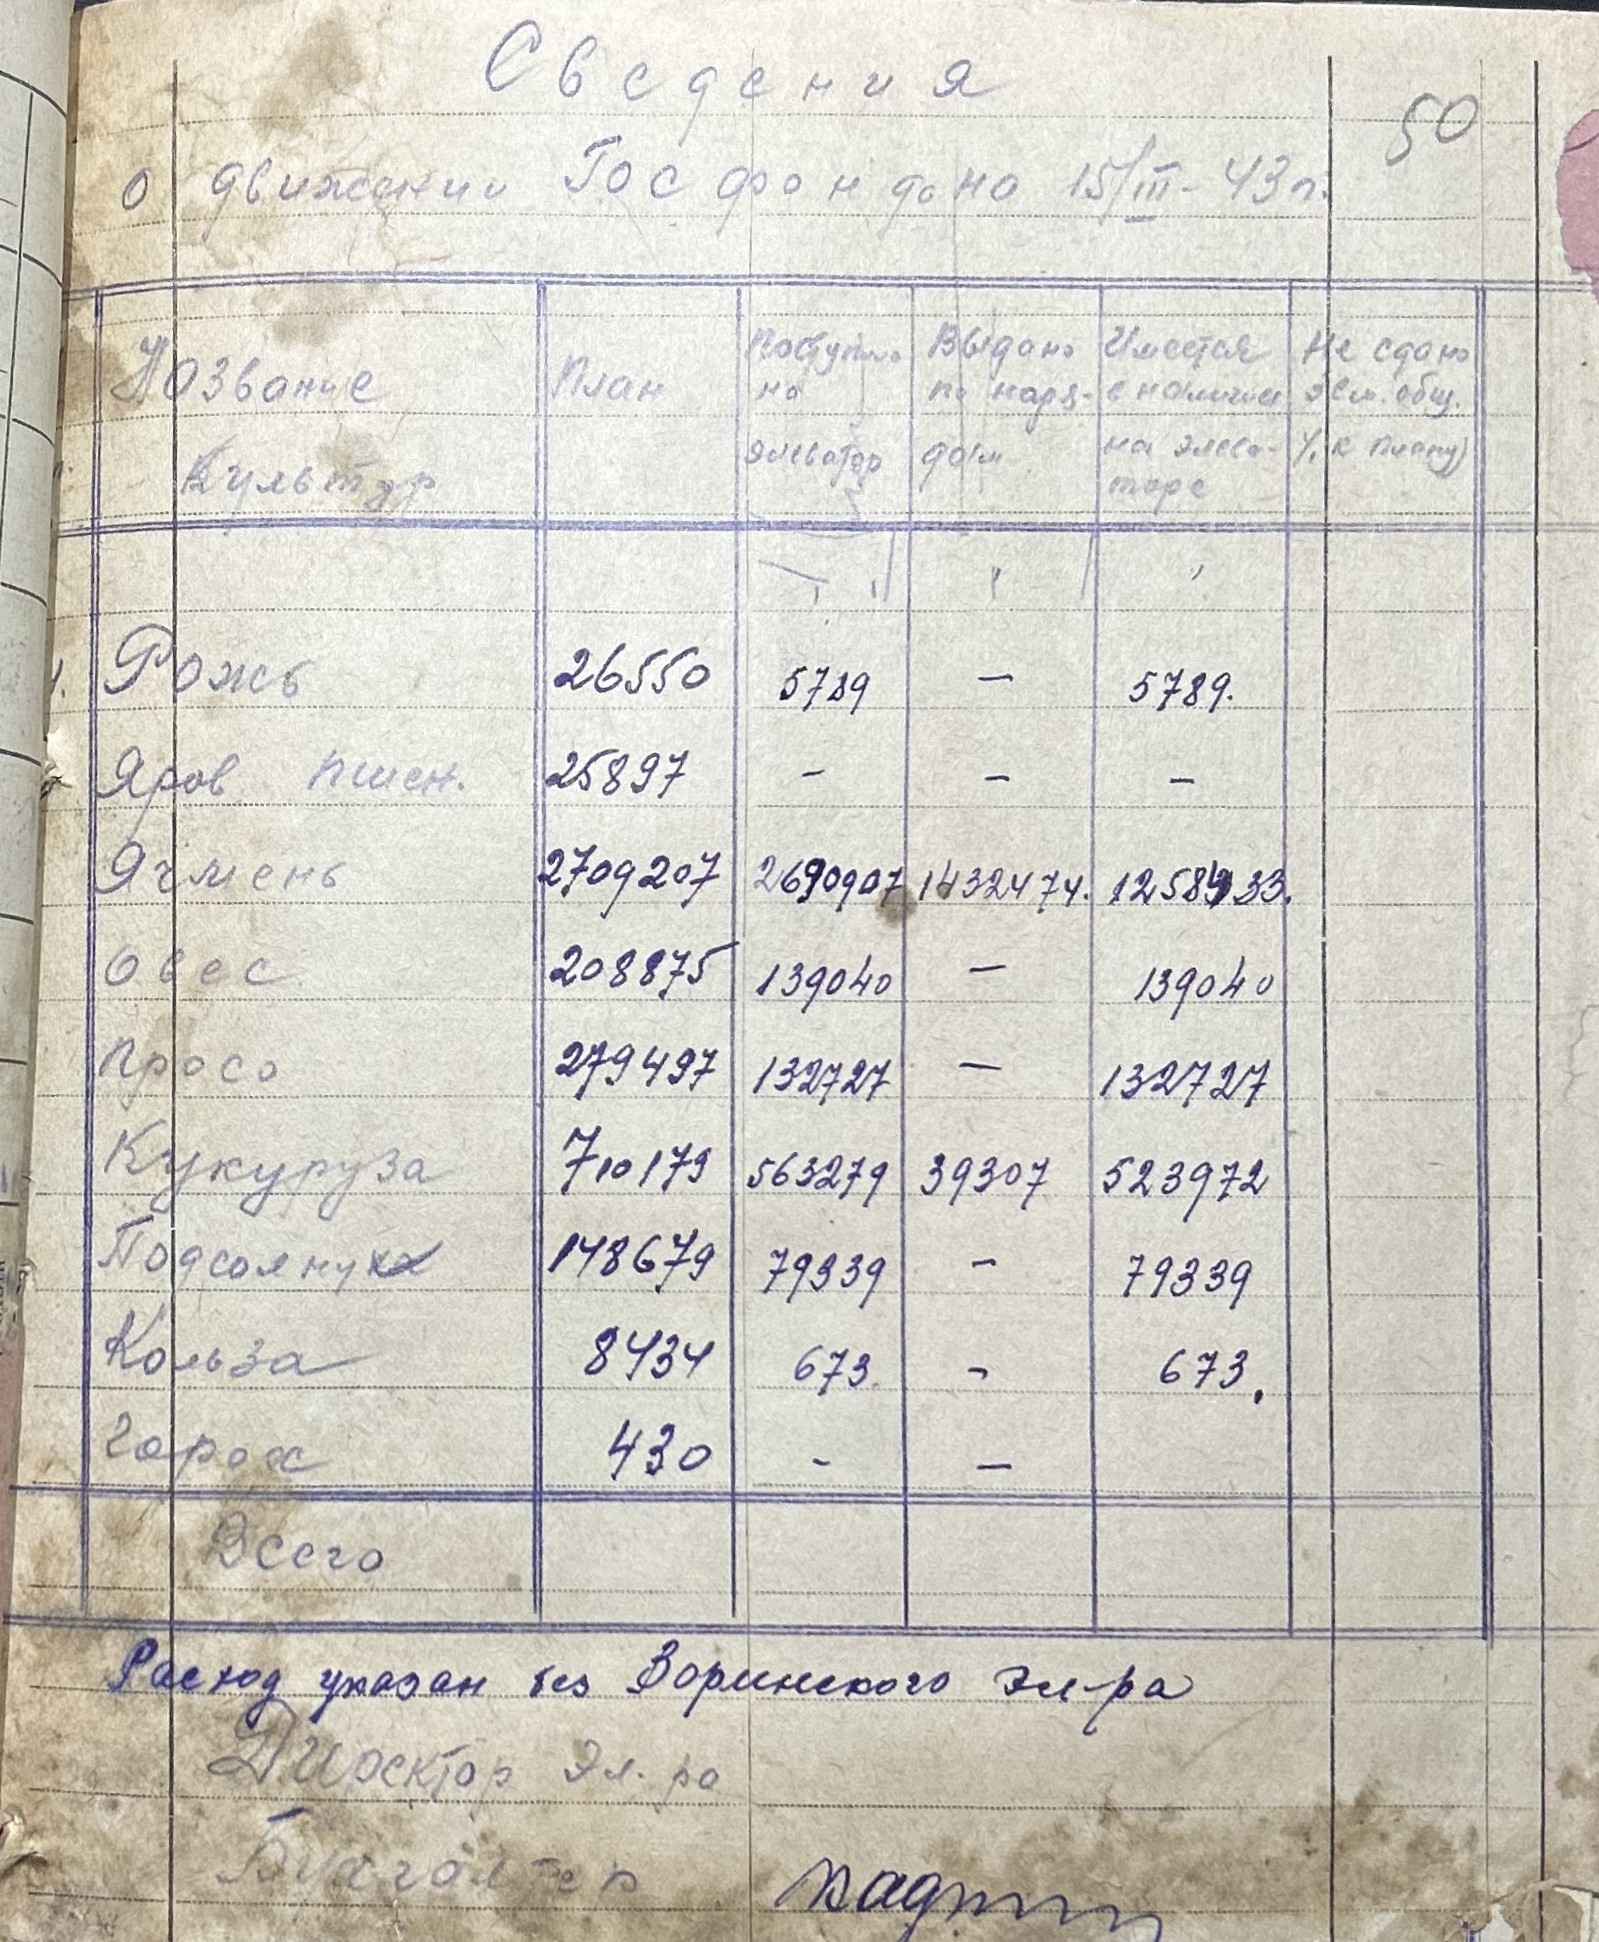 Сведения
50
о движении Госфондана 15/III-43 г.
Название Культур
План
Поступило на элеватор
Выдано по наря-дам
Имеется в наличии на элева-торе
Не сдано зем. общ. (% к плану)
Рожь 26550 5789 — 5789.
Яров пшен. 25897 — — —
Ячмень 2709207 2690907 1432474. 1258433.
Овес 208875 139040 — 139040
Просо 279497 132727 — 132727
Кукуруза 710179 563279 39307 523972
Подсолнух 148679 79339 — 79339
Кользa 8434 673 — 673.
Горох 430 - —
Всего
Расход указан без Воринского эл-ра
Директор Эл. ра
Бухгалтер